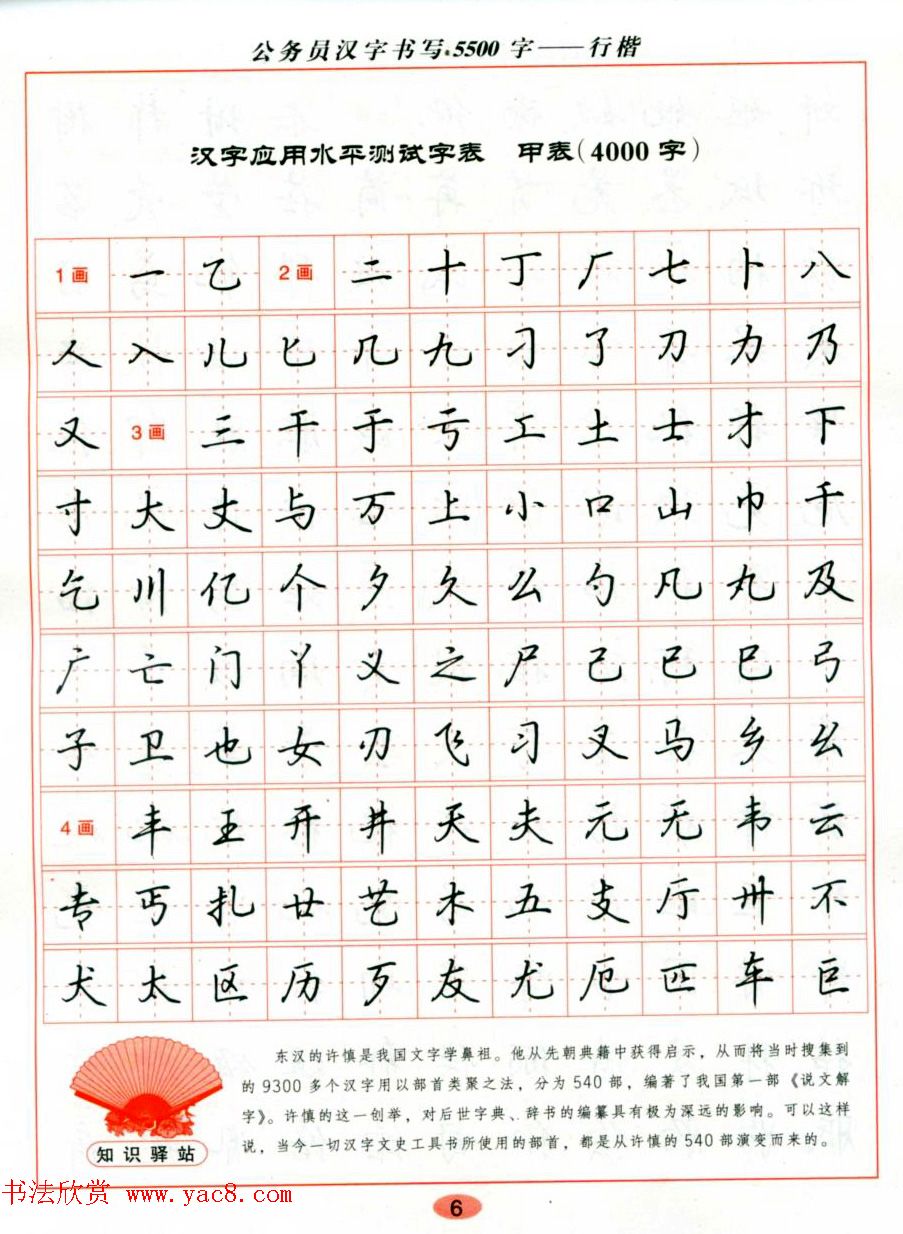 公务员汉字书写·5500字——行楷
汉字应用水平测试字表 甲表(4000字)
1画 一 乙 2画 二 十 丁 厂 七 卜 八
人 入 儿 匕 几 九 刁 了 刀 力 乃
又 3画 三 干 于 亏 工 土 士 才 下
寸 大 丈 与 万 上 小 口 山 巾 千
乞 川 亿 个 夕 久 么 勺 凡 丸 及
广 亡 门 丫 义 之 尸 己 已 巳 弓
子 卫 也 女 刃 飞 习 叉 马 乡 幺
4画 丰 王 开 井 天 夫 元 无 韦 云
专 丐 扎 廿 艺 木 五 支 厅 卅 不
犬 太 区 历 歹 友 尤 厄 匹 车 巨
东汉的许慎是我国文字学鼻祖。他从先朝典籍中获得启示，从而将当时搜集到
的9300多个汉字用以部首类聚之法，分为540部，编著了我国第一部《说文解
字》。许慎的这一创举，对后世字典、辞书的编纂具有极为深远的影响。可以这样
说，当今一切汉字文史工具书所使用的部首，都是从许慎的540部演变而来的。
知识驿站
书法欣赏 www.yac8.com
6